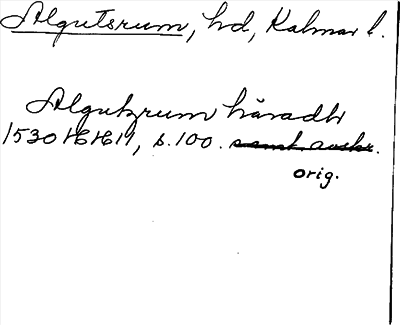 Algutsrum, hd, Kalmar l.
Algutzrum häradh
1530 HHH 11, s. 100. samt. avskr.
orig.